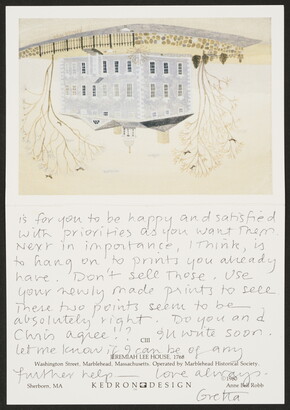 is for you to be happy and satisfied
with priorities as you want them.
Next in importance, I think, is
to hang on to prints you already
have. Don't sell those. Use
your newly made prints to sell
These two points seem to be
absolutely right. Do you and
Chris agree!? I'll write soon.
CIII
let me know if I can be of any
JEREMIAH LEE HOUSE, 1768
Washington Street, Marblehead, Massachusetts. Operated by Marblehead Historical Society.
further help — love always.
Sherborn, MA KEDRON DESIGN Anne Bell Robb
Gretta